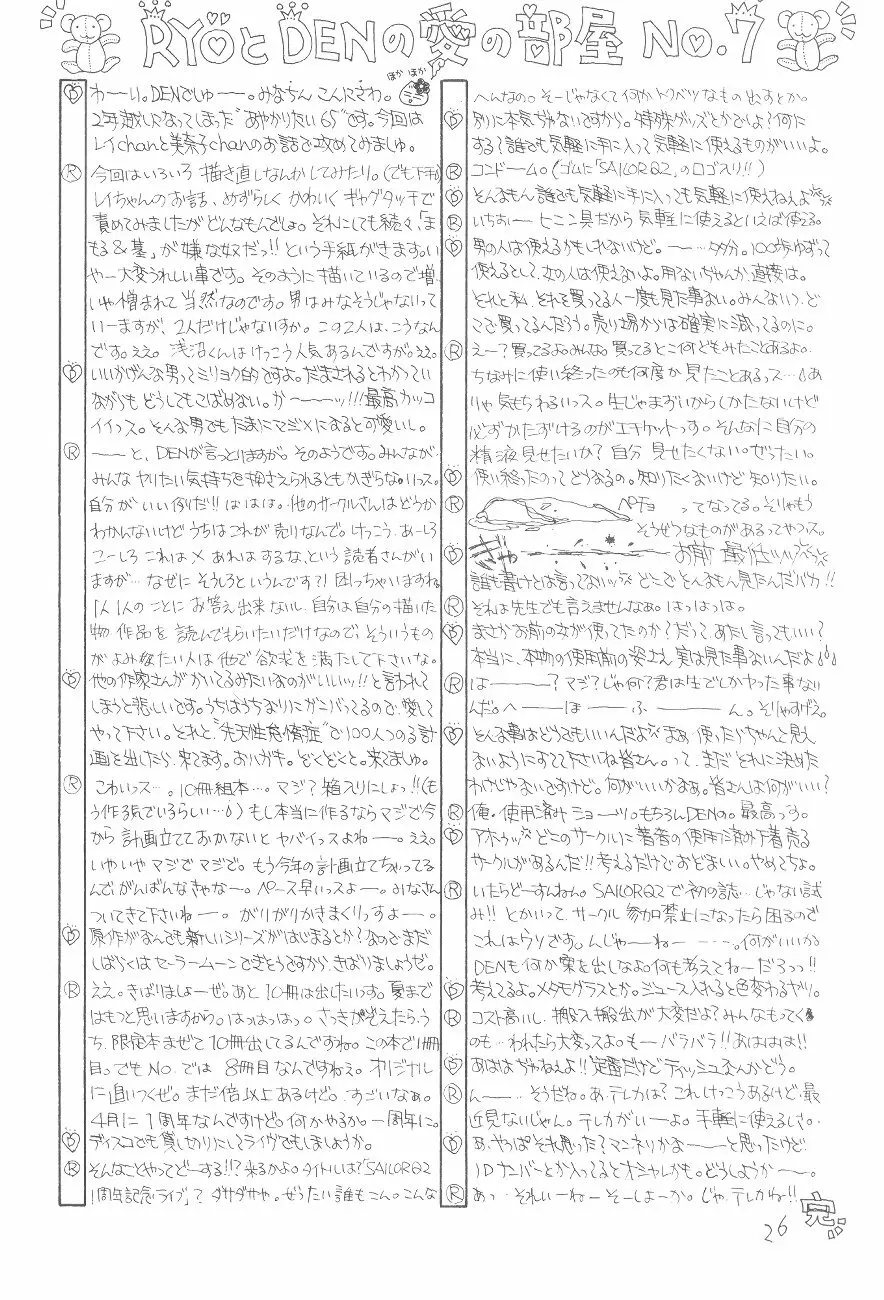 RYöとDENの愛の部屋 No.7
ほか ほか
D わーい。DENでしゅー。みなちん こんにさわ。
2年越しになってしまった"あやかりたい65"です。今回は
レイchanと美奈子chanのお話で攻めてみましゅ。
R 今回はいろいろ 描き直しなんかしてみたり。(でも下手)
レイちゃんのお話、めずらしく かわいく ギャグタッチで
責めてみましたが どんなもんでしょ。それにしても続々、「ま
もる&墓」が嫌な奴だっ!! という手紙がきます。い
やー大変うれしい事です。そのように描いているので増、
いや憎まれて 当然なのです。男はみなそうじゃないって
いーますが、2人だけじゃないすか。この2人は、こうなん
です。ええ。浅沼くんはけっこう人気あるんですが。ええ。
D いいかげんな男ってミリョク的ですよ。だまされるとわかってい
ながらも どうしてもこばめない。か〜〜ッ!!!最高カッコ
イイっス。そんな男でもたまにマジメになると可愛いし。
R ーーと、DENが言っとりますが。そのようです。みんなが、
みんな ヤりたい気持ちを押さえられるともかぎらないっス。
自分がいい例りだ!! ははは。他のサークルさんはどうか
わかんないけど うちはこれが売りなんで。けっこう、あーしろ
こーしろ これは× あれはするな、という読者さんがい
ますが… なぜに そうしろというんです?! 困っちゃいますね。
1人1人のことに お答え出来ないし、自分は自分の描いた
物 作品を 読んでもらいたいだけなので、そういうもの
がよみたい人は 他で 欲求を 満たして下さいな。
D 他の作家さんがかいてるみたいなのがいいッ!! と言われて
しまうと悲しいです。うちはうちなりにガンバってるので、愛して
やって下さい。それと、"先天性怠惰症"で100人つのる計
画を出したら、来てます。おハガキ。どくどくと。来てましゅ。
R こわいっス…。10冊組本…。マジ? 箱入りにしょっ!!(も
う作る気でいるらしい…) もし本当に作るならマジで今
から 計画立てて おかないと ヤバイっスよねー。ええ。
いやいや マジで マジで。もう今年の計画立てちゃってる
んで がんばんなきゃなー。ペース早いっスよー。みなさん
ついてきて下さいねー。がりがりかきまくりっすよー。
D 原作がなんでも新しいシリーズがはじまるとか? なのでまだ
しばらくは セーラームーンできそうですから、きばりましょうぜ。
R ええ。きばりましょーぜ。あと 10冊は出したいっす。夏まで
はもつと思いますから。はっはっはっ。さっきかぞえたら、う
ち、限定本まぜて 10冊出してるんですね。この本で11冊
目。でも No. では 8冊目なんですねぇ。オリジナル
に追いつくぜ。まだ倍以上あるけど。すごいなぁ。
4月に 1周年なんですけど。何かやるか。一周年に。
D ディスコでも貸しきりにしてライヴでもしましょうか。
R そんなことやってどーする!!? 来るかよ。タイトルは?「SAILOR Q2
1周年記念ライブ」? ダサダサや。ぜったい誰もこん。こんな
へんなの。そーじゃなくて何かトクベツなもの出すとか。
D 別に本気ぢゃないですから。特殊グッズとかでしょ? 何に
する? 誰でも気軽に手に入って気軽に使えるものがいいよ。
R コンドーム。(ゴムに「SAILOR Q2」のロゴ入り!!)
D そんなもん 誰でも気軽に手に入っても気軽に使えねぇよ
R いちおー 七ニンニ具だから 気軽に使えるといえば使える。
D 男の人は使えるかもしれないけど。ー…多分。100歩ゆずって
使えるとして、女の人は使えないよ。用ないちゃんか、直接は。
それと私、それを買ってる人一度も見た事ない。みんないつ、ど
こで買ってるんだろう。売り場からは確実に減ってるのに。
R えー? 買ってるよみんな。買ってるとこ何どもみたことあるよ。
ちなみに使い終ったのも何度か見たことあるっス…あ
りゃ気もちわるいっス。生じゃまずいからしかたないけど
必ずかたずけるのがエチケットっす。そんなに自分の
精液見せたいか? 自分 見せたくない。ぜったい。
D 使い終ったのってどうなるの。知りたくないけど知りたい。
R ペチョ ってなってる。そりゃもう
そうぜつなものがあるってやつっス。
D ぎゃ お前 最低ッッ
誰も書けとは言ってないッ どこで そんなもん見たんだバカ!!
R それは先生でも言えませんなぁ。はっはっは。
D まさかお前の女が使ってたのか? だって、あたし言ってもいい?
本当に、本物の使用前の姿さえ 実は見た事ないんだよ
R はーー? マジ? じゃ何? 君は生でしかヤった事ない
んだ。へーーほーーふーーん。そりゃすげえ。
D そんな事はどうでもいいんだよ まぁ・使ったらちゃんと見え
ないようにすてて下さいね皆さん。って、まだ それに決めた
わけじゃないですけど。何がいいかなぁ。皆さんは何がいい?
R 俺・使用済み ショーツ。もちろんDENの。最高っす。
D アホゥッ どこのサークルに著者の使用済み下着売る
サークルがあるんだ!! 考えるだけでおどましい。やめてちょ。
R いたらどーすんねん。SAILOR Q2で初の誌…じゃない試
み!! とかいって サークル 参加禁止になったら困るので
これはウソです。んじゃーねー…。何がいいか
DENも何か案を出しなよ。何も考えてねーだろっっ!!
D 考えてるよ。メタモグラスとか。ジュース入れると色変わるヤツ。
R コスト高いし、搬入搬出が大変だよ? みんなもってく
のも…われたら大変っスよ。もーバラバラ!! あははは!!
D あははぢゃねえよ!! 定番だけどティッシュなんかどう。
R んー… そうだね。あ、テレカは? これけっこうあるけど・最
近見ないじゃん。テレカがいーよ。手軽に使えるしさ。
D あ、やっぱそれ思った? マンネリかなーーと思ったけど
IDナンバーとか入ってるとオシャレかも。どうしようかー。
R あっ それいーねー そーしよーか。じゃ、テレカね!!
完
26